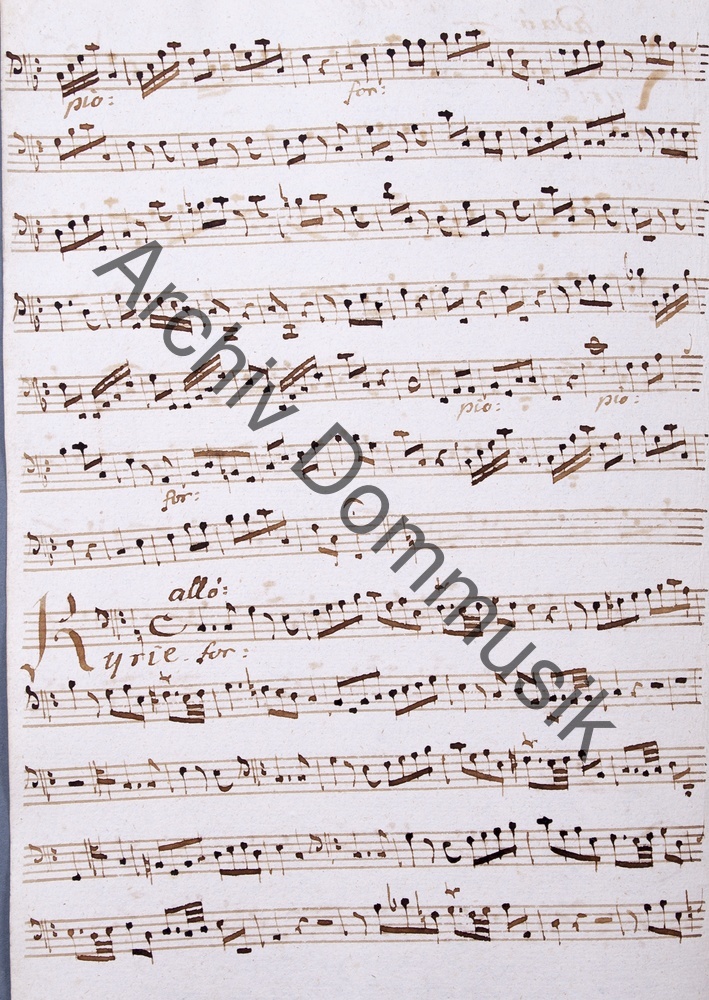 pio: for:
pio: pio:
for:
allo:
Kyrie for:
Archiv Dommusik